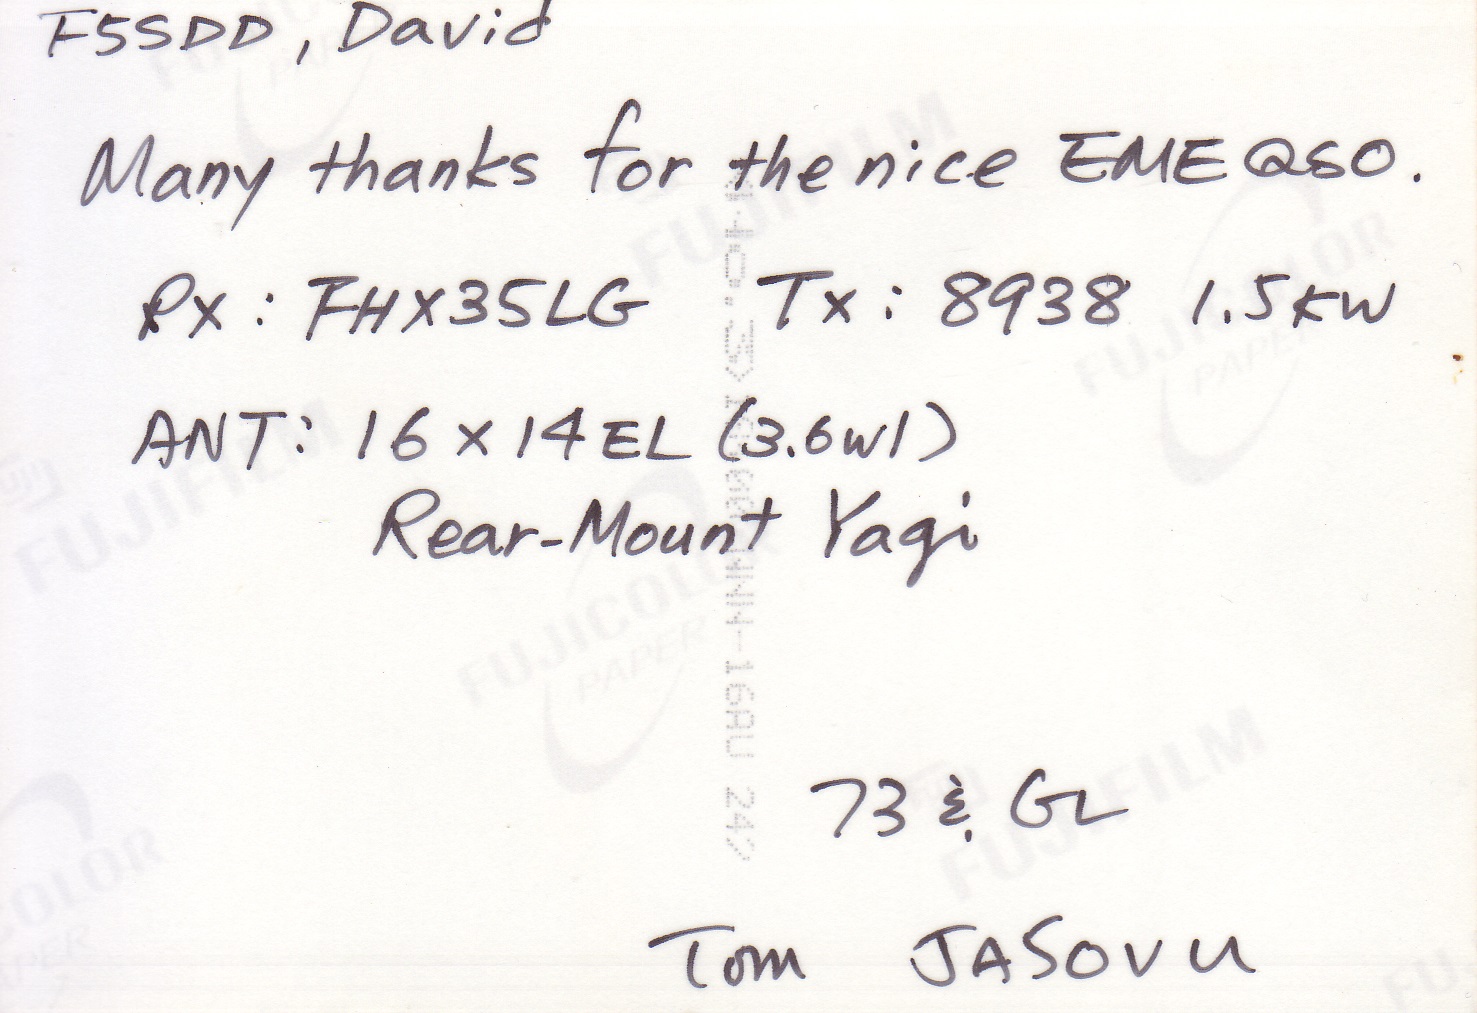 F5SDD, David
Many thanks for the nice EME QSO.
Rx: FHX35LG Tx: 8938 1.5KW
ANT: 16 x 14EL (3.6wl)
Rear-Mount Yagi
73 & GL
Tom JA5OVU
FUJIFILM
FUJICOLOR
PAPER
FUJIFILM
FUJICOLOR
PAPER
FUJIFILM